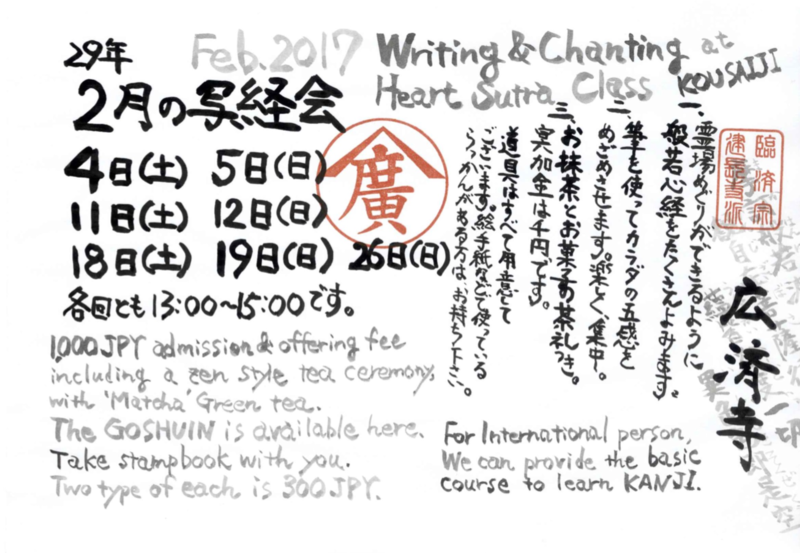 29年
Feb. 2017
2月の写経会
Writing & Chanting at
Heart Sutra Class KOUSAIJI
4日(土) 5日(日)
11日(土) 12日(日)
18日(土) 19日(日) 26日(日)
各回とも13:00〜15:00です。
廣
一、霊場めぐりができるように
般若心経をたくさんよみます。
二、筆を使ってカラダの五感を
めざめさせます。楽しく、集中。
三、お抹茶とお菓子の茶礼つき。
冥加金は千円です。
道具はすべて用意して
ございます。絵手紙などで使っている
らっかんがある方は、お持ち下さい。
臨済宗
建長寺派
広済寺
1,000JPY admission & offering fee
including a zen style tea ceremony,
with 'Matcha' Green tea.
The GOSHUIN is available here.
Take stampbook with you.
Two type of each is 300JPY.
For International person,
We can provide the basic
course to learn KANJI.